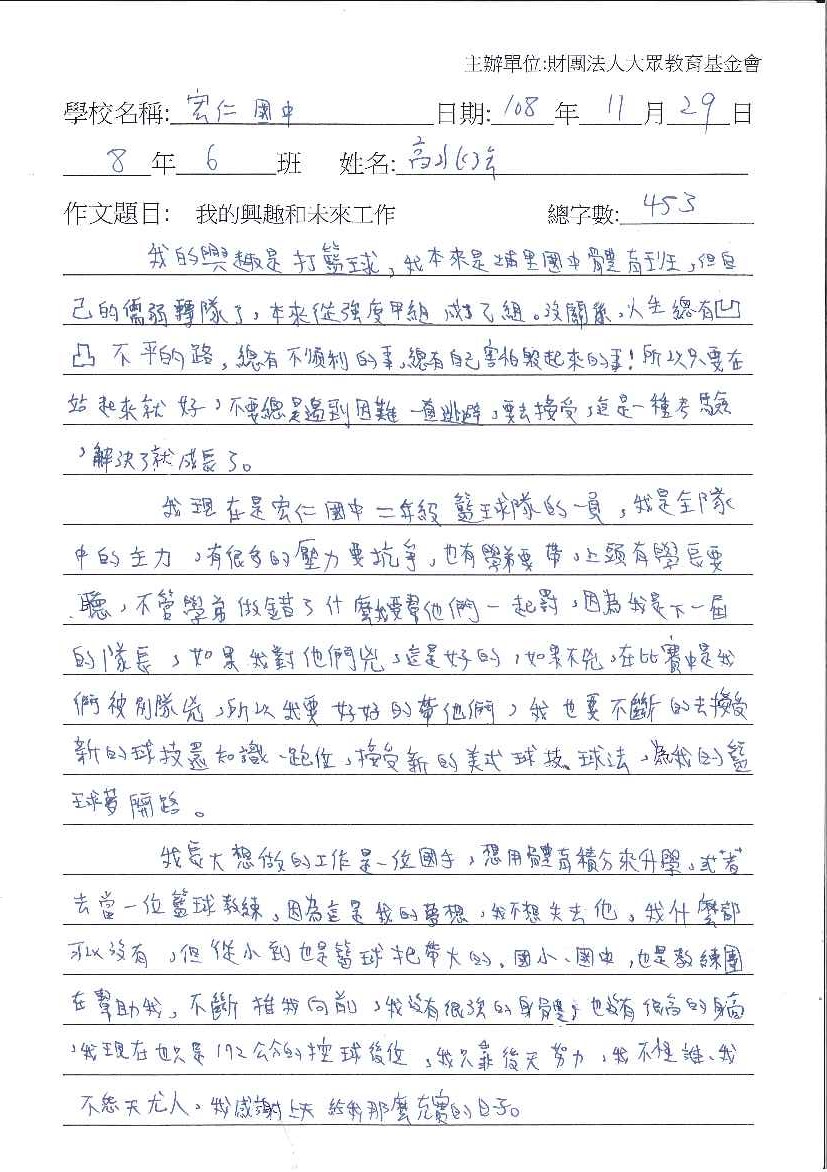 主辦單位:財團法人大眾教育基金會
學校名稱: 宏仁國中 日期: 108 年 11 月 29 日
8 年 6 班 姓名: 高
作文題目: 我的興趣和未來工作 總字數: 453
我的興趣是打籃球,我本來是埔里國中體育班,但自
己的儒弱轉隊了,本來從強度甲組成了乙組。沒關係,人生總有凹
凸不平的路,總有不順利的事,總有自己害怕毀起來的事!所以只要在
站起來就好,不要總是遇到困難一直逃避,要去接受,這是一種考驗
,解決了就成長了。
我現在是宏仁國中二年級籃球隊的一員,我是全隊
中的主力,有很多的壓力要抗爭,也有學弟要帶,上頭有學長要
聽,不管學弟做錯了什麼我要幫他們一起罰,因為我是下一屆
的隊長,如果我對他們兇,這是好的,如果不兇,在比賽中是我
們被別隊兇,所以我要好好的帶他們,我也要不斷的去接受
新的球技還知識、跑位,接受新的美式球技、球法,為我的籃
球夢開路。
我長大想做的工作是一位國手,想用體育積分來升學,或者
去當一位籃球教練,因為這是我的夢想,我不想失去他,我什麼都
可以沒有,但從小到也是籃球把帶大的,國小、國中,也是教練團
在幫助我,不斷推我向前,我沒有很強的身體,也沒有很高的身高
,我現在也只是172公分的控球後位,我只靠後天努力,我不怪誰、我
不怨天尤人,我感謝上天給我那麼充實的日子。